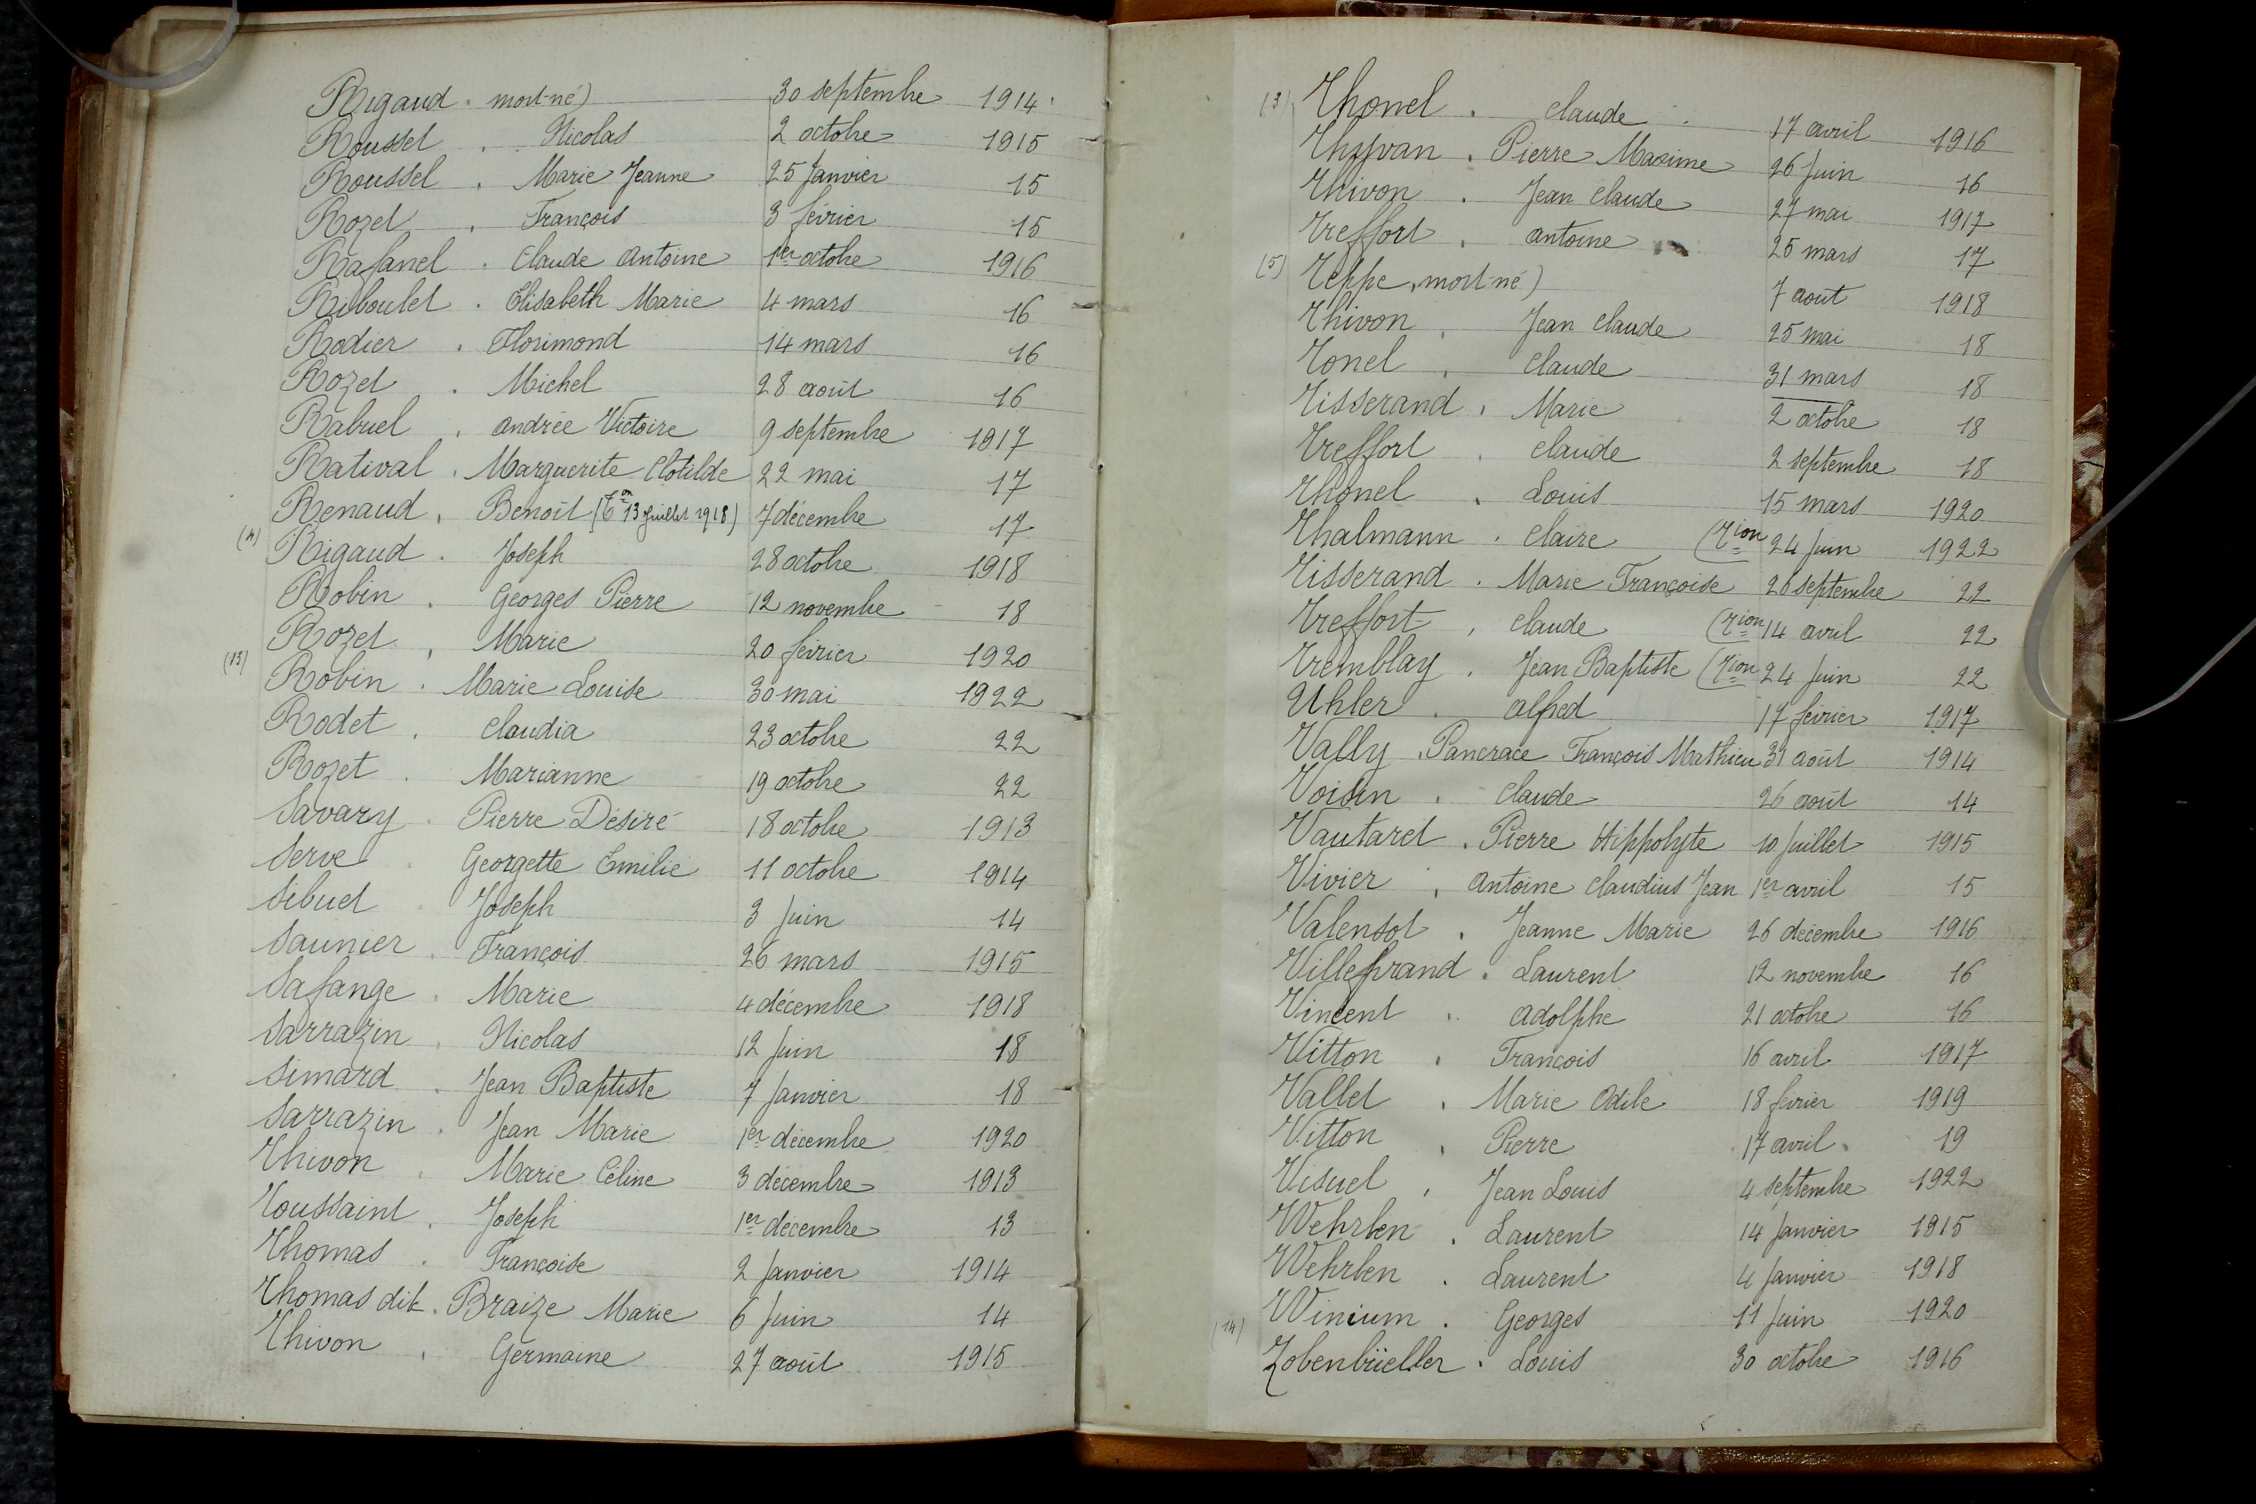 Rigaud . mort-né) 30 septembre 1914
Roussel . Nicolas 2 octobre 1915
Roussel . Marie Jeanne 25 Janvier 15
Rozet . François 3 février 15
Rafanel . Claude Antoine 1er octobre 1916
Riboulet . Elisabeth Marie 4 mars 16
Rodier . Florimond 14 mars 16
Rozet . Michel 28 août 16
Rabuel . Andrée Victoire 9 septembre 1917
Rativat . Marguerite Clotilde 22 mai 17
Renaud . Benoît (Ton 13 Juillet 1918) 7 décembre 17
(4) Rigaud . Joseph 28 octobre 1918
Robin . Georges Pierre 12 novembre 18
Rozet . Marie 20 février 1920
(13) Robin . Marie Louise 30 mai 1922
Rodet . Claudia 23 octobre 22
Rozet . Marianne 19 octobre 22
Savary . Pierre Désiré 18 octobre 1913
Serve . Georgette Emilie 11 octobre 1914
Sibuet . Joseph 3 Juin 14
Saunier . François 26 mars 1915
Safange . Marie 4 décembre 1918
Sarrazin . Nicolas 12 Juin 18
Simard . Jean Baptiste 7 Janvier 18
Sarrazin . Jean Marie 1er décembre 1920
Thivon . Marie Céline 3 décembre 1913
Toussaint . Joseph 1er décembre 13
Thomas . Françoise 2 Janvier 1914
Thomas dit . Braize Marie 6 Juin 14
Thivon . Germaine 27 août 1915
(3) Thonel . Claude . 17 avril 1916
Thyvan . Pierre Maxime 26 Juin 16
Thivon . Jean Claude 27 mai 1917
Treffort . Antoine 25 mars 17
(5) Teppe , mort-né) 7 août 1918
Thivon . Jean Claude 25 mai 18
Tonel . Claude 31 mars 18
Tisserand . Marie 2 octobre 18
Treffort . Claude 2 septembre 18
Thonel . Louis 15 mars 1920
Thalmann . Claire (Tion 24 Juin 1922
Tisserand . Marie Françoise 20 septembre 22
Treffort . Claude (Tion 14 avril 22
Tremblay . Jean Baptiste (Tion 24 Juin 22
Uhler . Alfred 17 février 1917
Vally . Pancrace François Mathieu 31 août 1914
Voisin . Claude 26 août 14
Vautaret . Pierre Hippolyte 10 Juillet 1915
Vivier . Antoine Claudius Jean 1er avril 15
Valensot . Jeanne Marie 26 décembre 1916
Villefrand . Laurent 12 novembre 16
Vincent . Adolphe 21 octobre 16
Vitton . François 16 avril 1917
Vallet . Marie Odile 18 février 1919
Vitton . Pierre 17 avril . 19
Visuel . Jean Louis 4 septembre 1922
Wehrlen . Laurent 14 Janvier 1915
Wehrlen . Laurent 4 Janvier 1918
Winium . Georges 11 Juin 1920
(14) Zobenbüeller . Louis 30 octobre 1916